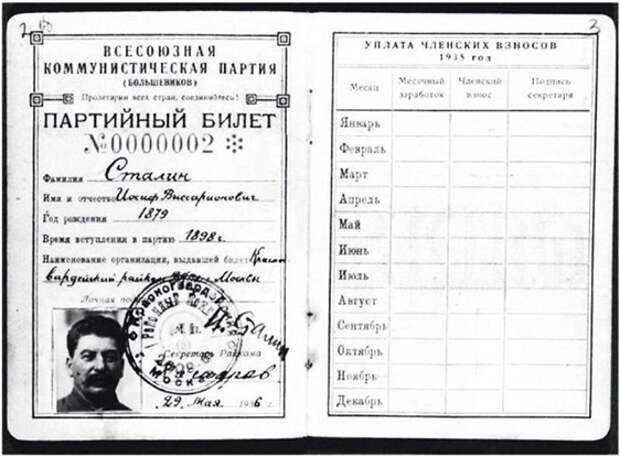 2
ВСЕСОЮЗНАЯ
КОММУНИСТИЧЕСКАЯ ПАРТИЯ
(БОЛЬШЕВИКОВ)
Пролетарии всех стран, соединяйтесь!
ПАРТИЙНЫЙ БИЛЕТ
№0000002
Фамилия Сталин
Имя и отчество Иосиф Виссарионович
Год рождения 1879
Время вступления в партию 1898 г.
Наименование организации, выдавшей билет Красно
гвардейский райком г. Москвы
Личная
И. Сталин
М. П.
Секретарь Райкома
МОСКВА
29 Мая 1936 г.
3
УПЛАТА ЧЛЕНСКИХ ВЗНОСОВ
1935 год
Месяц Месячный заработок Членский взнос Подпись секретаря
Январь
Февраль
Март
Апрель
Май
Июнь
Июль
Август
Сентябрь
Октябрь
Ноябрь
Декабрь